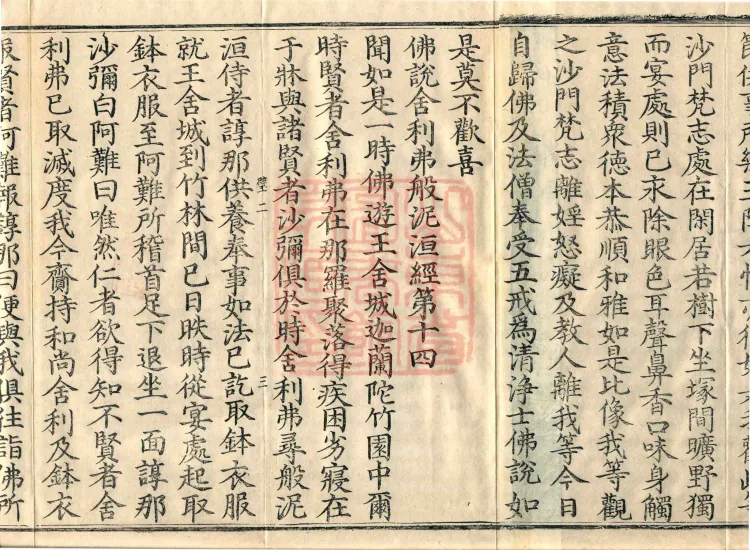 沙門梵志處在閑居若樹下坐塚間曠野獨
而宴處則已永除眼色耳聲鼻香口味身觸
意法積衆徳本恭順和雅如是比像我等觀
之沙門梵志離婬怒癡及教人離我等今日
自歸佛及法僧奉受五戒爲清淨士佛說如
是莫不歡喜
佛說舍利弗般泥洹經第十四
聞如是一時佛遊王舍城迦蘭陀竹園中爾
時賢者舍利弗在那羅聚落得疾困劣寢在
于牀與諸賢者沙彌俱於時舍利弗尋般泥
二 三
洹侍者諄那供養奉事如法已訖取鉢衣服
就王舍城到竹林間已日昳時從宴處起取
鉢衣服至阿難所稽首足下退坐一面諄那
沙彌白阿難曰唯然仁者欲得知不賢者舍
利弗已取滅度我今齎持和尚舍利及鉢衣
賢者阿難報諄那曰便與我俱往詣佛所